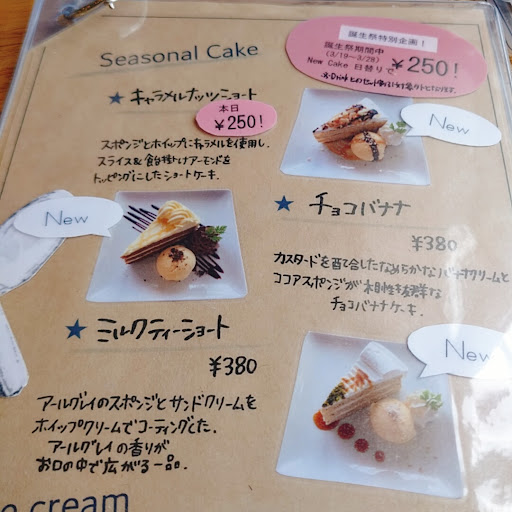 Seasonal Cake
誕生祭特別企画！
誕生祭期間中
(3/19〜3/28)
New Cake 日替りで
¥250!
※Drinkとのセット割引対象外となります。
★ キャラメルナッツショート
本日
¥250!
スポンジとホイップにキャラメルを使用し、
スライス&飴掛けアーモンドを
トッピングにしたショートケーキ.
New
★ チョコバナナ
¥380
カスタードを配合したなめらかなバナナクリームと
ココアスポンジが相性抜群な
チョコバナナケーキ.
New
★ ミルクティーショート
¥380
アールグレイのスポンジとサンドクリームを
ホイップクリームでコーティングした.
アールグレイの香りが
お口の中で広がる一品.
New
cream